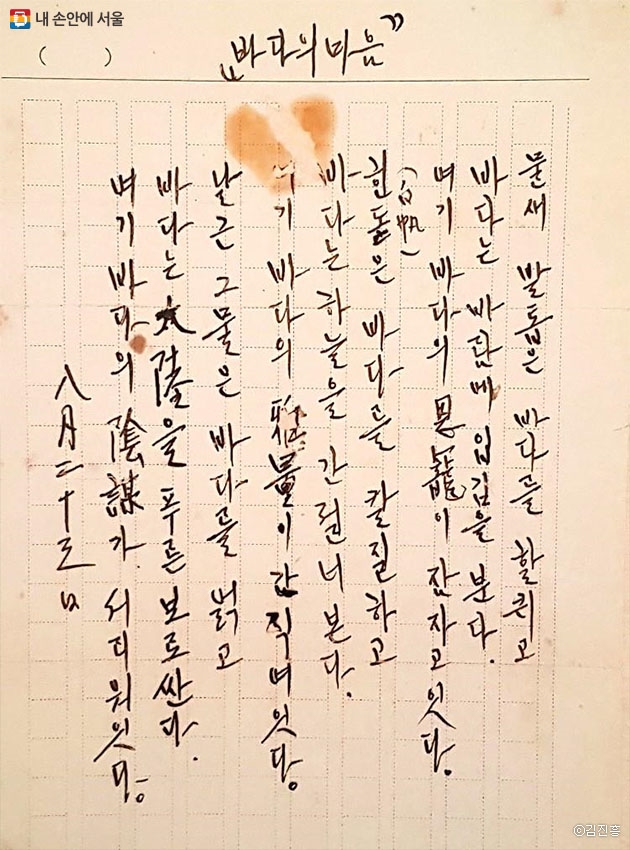 내 손안에 서울
( ) “바다의 마음”
물새 발톱은 바다를 할퀴고
바다는 바람에 입김을 분다.
여기 바다의 恩寵이 잠자고잇다.
힌돛(白帆)은 바다를 칼질하고
바다는 하늘을 간질너본다.
여기 바다의 雅量이 간직여잇다.
날근 그물은 바다를 얽고
바다는 大陸을 푸른 보로싼다.
여기 바다의 陰謀가 서리워잇다.
八月二十三日
©김진흥